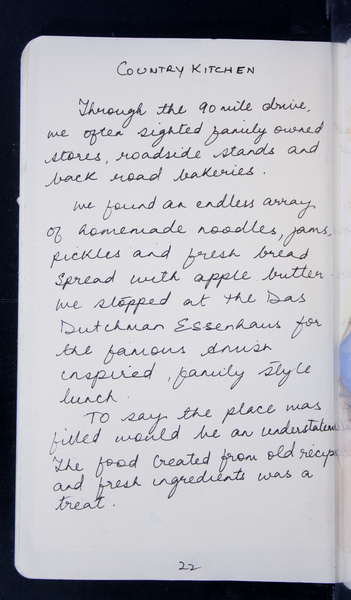 COUNTRY KITCHEN
Through the 90 mile drive,
we often sighted family owned
stores, roadside stands and
back road bakeries.
We found an endless array
of homemade noodles, jams,
pickles and fresh bread
spread with apple butter.
We stopped at the Das
Dutchman Essenhaus for
the famous Amish
inspired, family style
lunch.
To say the place was
filled would be an understatem
The food created from old recipe
and fresh ingredients was a
treat.
22